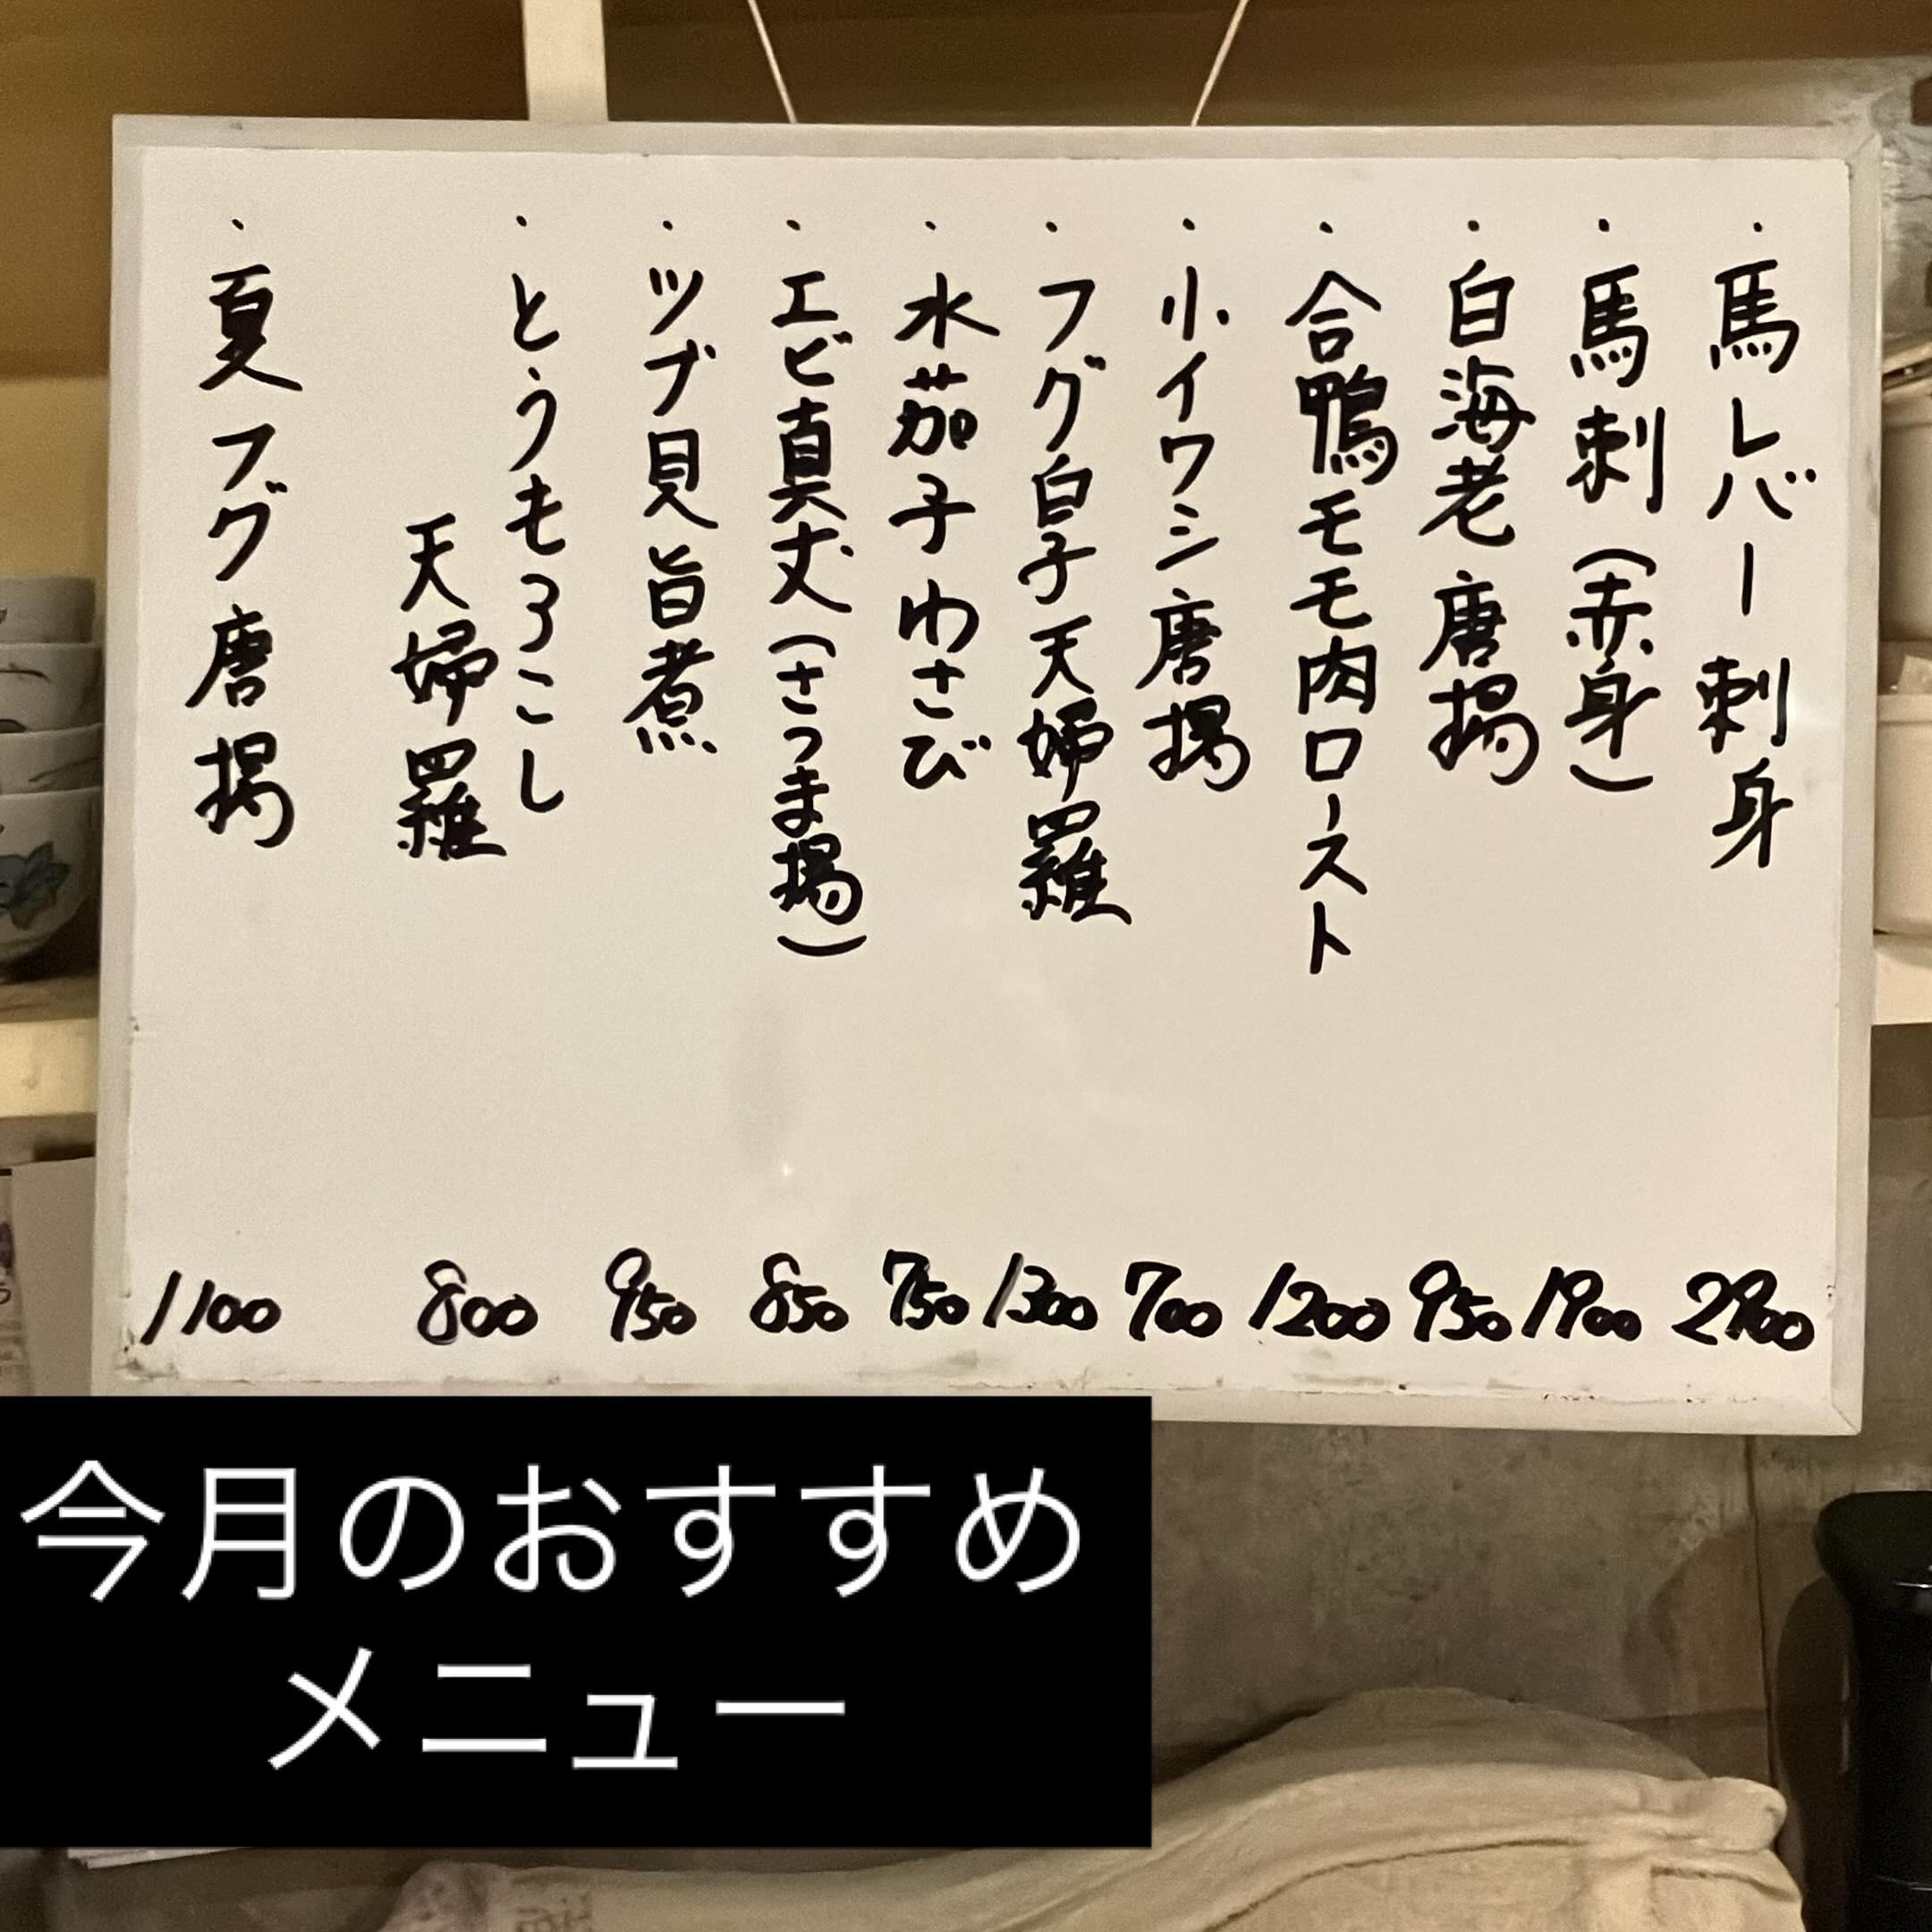 ・馬レバー刺身 2900
・馬刺(赤身) 1900
・白海老唐揚 950
・合鴨モモ肉ロースト 1200
・小イワシ唐揚 700
・フグ白子天婦羅 1300
・水茄子わさび 750
・エビ真丈(さつま揚) 850
・ツブ貝旨煮 950
・とうもろこし
天婦羅 800
・夏フグ唐揚 1100
今月のおすすめ
メニュー